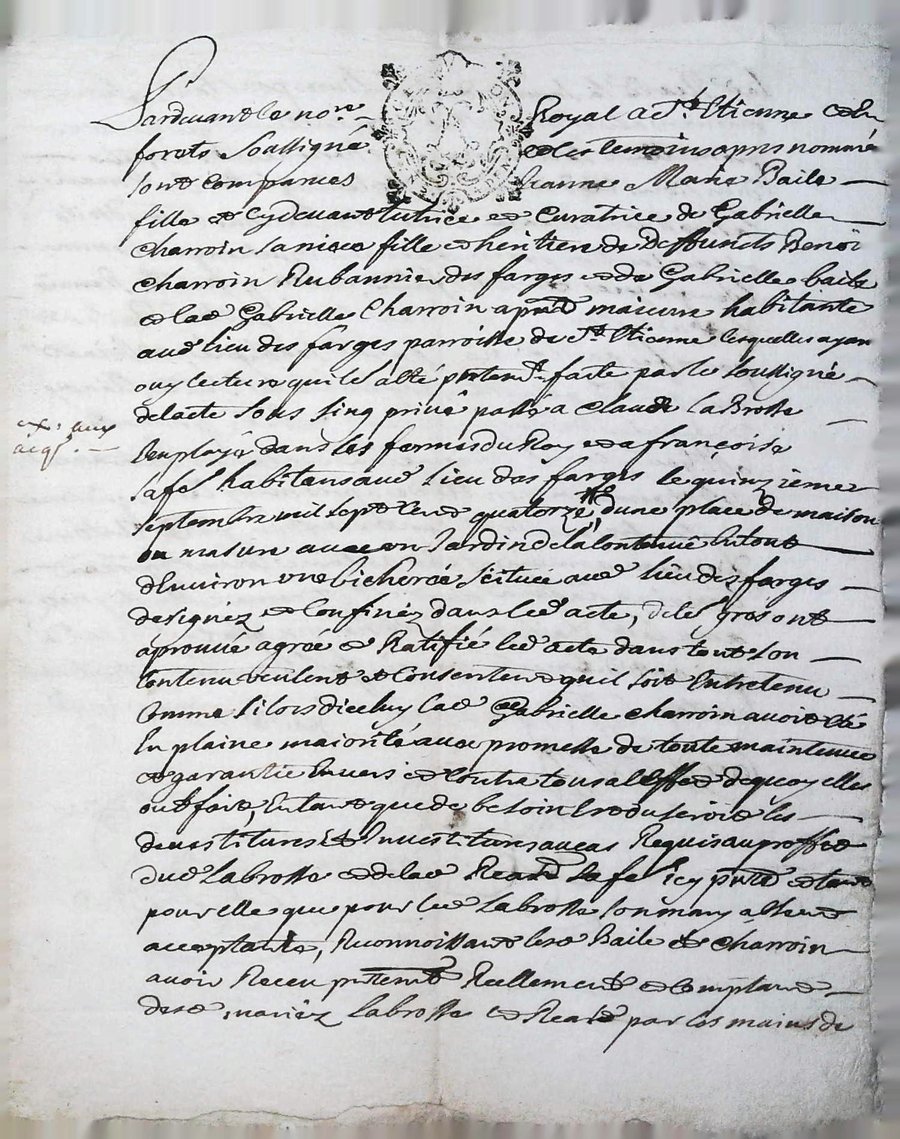 Pardevant le no.re Royal a S.t Etienne en
forets soussigné et les temoins apres nommé
sont comparues Jeanne Marie Baile
fille et cydevant tutrice et curatrice de Gabrielle
Charroin sa niece fille et heritiere de deffuncts Benoi
charroin Rubannier des farges et de Gabrielle baile
et lad Gabrielle Charroin a pnt maieure habitante
aud lieu des farges parroisse de S.t Etienne lesquelles ayan
ouy lecture qui les a été pntem.t faite par le soussigné
de lacte sous sing privé passé a Claude la Brosse
Employé dans les fermes du Roy et a françoise
sa fe habitans aud lieu des farges le quinzieme
septembre mil sept cent quatorze, d'une place de maison
ou masure avec un Jardin de la contenue en tout
d'Environ une bicherée, scituée aud lieu des farges
designéz et Confinéz dans led acte, de les gres ont
aprouvé agrée et Ratifié led acte dans tout son
Contenu veulent et Consentent qu'il soit Entretenu
Comme si lors d'iceluy lad Gabrielle charroin avoit été
En plaine majorité avec promesse de toute maintenue
et garantie Envers et Contre tous a l'effet de quoy elles
ont fait, En tant que de besoin les
devestitures et Investitures au cas Requis au proffit
dud Labrosse et de lad sa fe Icy pnte et tant
pour elle que pour led Labrosse son mary absent
acceptante, Reconnoissant lesd Baile et Charroin
avoir Receu pntem.t Reellement et Comptant
desd mariéz Labrosse et par les mains de
aux
acq.